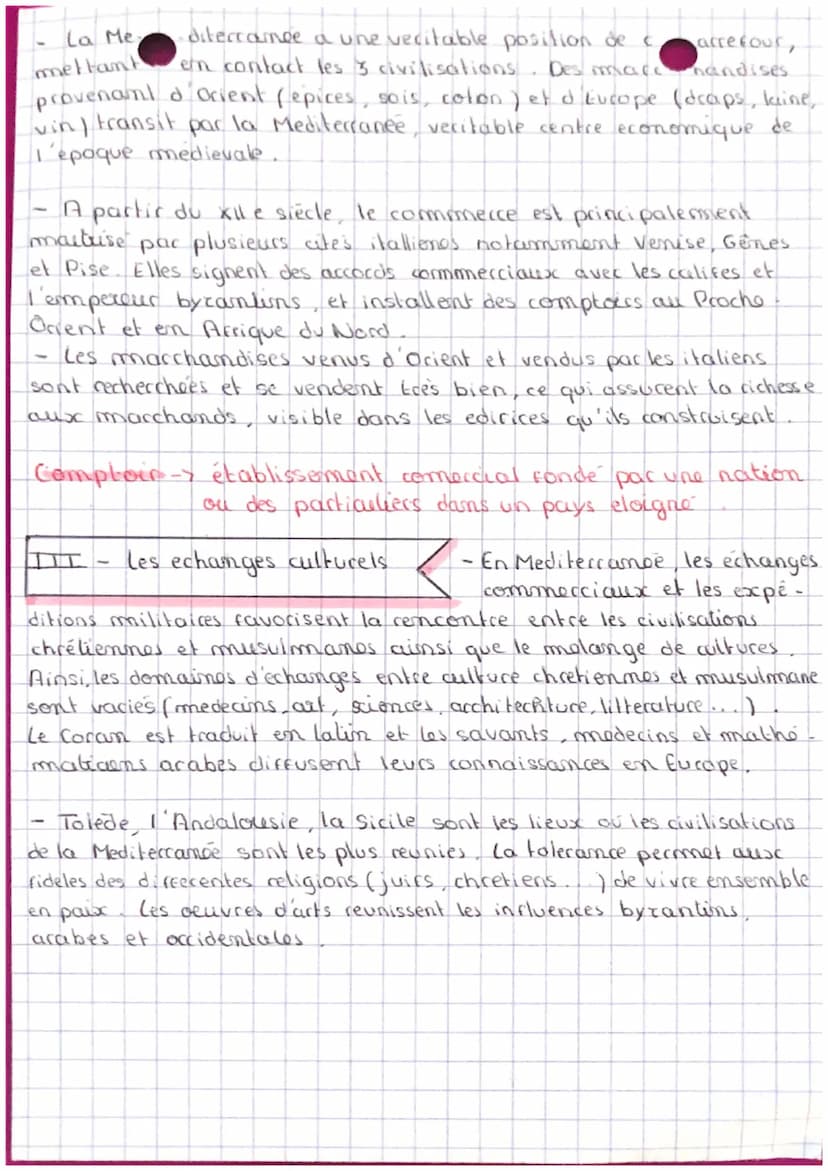 - La Mediterranée a une veritable position de carrefour,
mettant en contact les 3 civilisations. Des marchandises
provenant d'Orient (épices, sois, coton) et d'Europe (draps, laine,
vin) transit par la Mediterranée, veritable centre economique de
l'époque médievale.
- A partir du XIIe siècle, le commmerce est principalement
maitrisé par plusieurs cités italliènes notamment Venise, Gênes
et Pise. Elles signent des accords commmerciaux avec les califes et
l'empereur byzantins, et installent des comptoirs au Proche-
Orient et en Afrique du Nord.
- Les marchandises venus d'Orient et vendus par les italiens
sont recherchées et se vendent très bien, ce qui assurent la richesse
aux marchands, visible dans les edifices qu'ils construisent.
Comptoir -> établissement comercial fondé par une nation
ou des particuliers dans un pays eloigné.
III - Les echanges culturels
- En Mediterranée, les échanges
commerciaux et les expé-
ditions militaires favorisent la rencontre entre les civilisations
chrétiennes et musulmanes ainsi que le melange de cultures.
Ainsi, les domaines d'échanges entre culture chretiennes et musulmane
sont variés (medecins, art, sciences, architechture, litterature...).
Le Coran est traduit en latin et les savants, medecins et mathé-
maticiens arabes diffusent leurs connaissances en Europe.
- Tolède, l'Andalousie, la Sicile sont les lieux où les civilisations
de la Mediterranée sont les plus reunies. La tolerance permet aux
fideles des differentes religions (juifs, chretiens...) de vivre ensemble
en paix. Les oeuvres d'arts reunissent les influences byzantins,
arabes et occidentales.